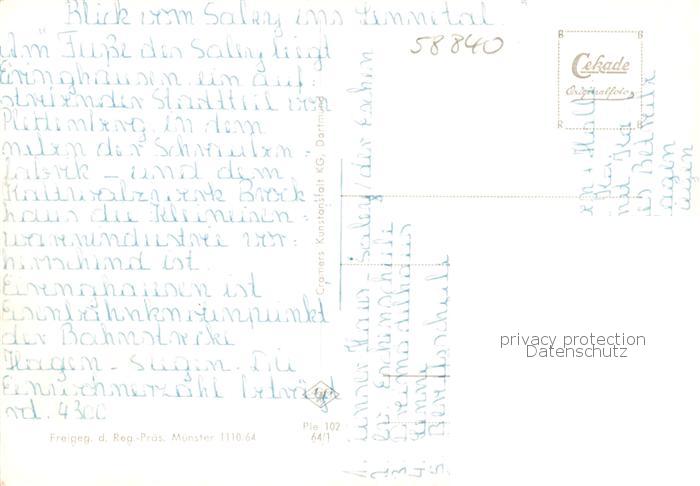 Blick vom Saley ins Lennetal.
Am Fuße der Saley liegt
Eiringhausen ein auf=
strebender Stadtteil von
Plettenberg, in dem
neben der Schrauben=
fabrik - und dem
Kaltwalzwerk Brock
haus die Kleineisen=
warenindustrie vor=
herrschend ist.
Eiringhausen ist
Eisenbahnknotenpunkt
der Bahnstrecke
Hagen - Siegen. Die
Einwohnerzahl beträgt
rd. 4300
58840
Cekade
Originalfoto
Cramers Kunstanstalt KG, Dortmund
1. unser Haus Saley/der
2. ev.
3.
4.
5. Berufsschule
Ple 102
64/1
Freigeg. d. Reg.-Präs. Münster 1110.64
privacy protection
Datenschutz